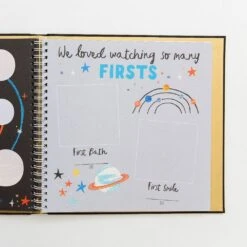 We loved watching so many
FIRSTS
First Bath
First Smile